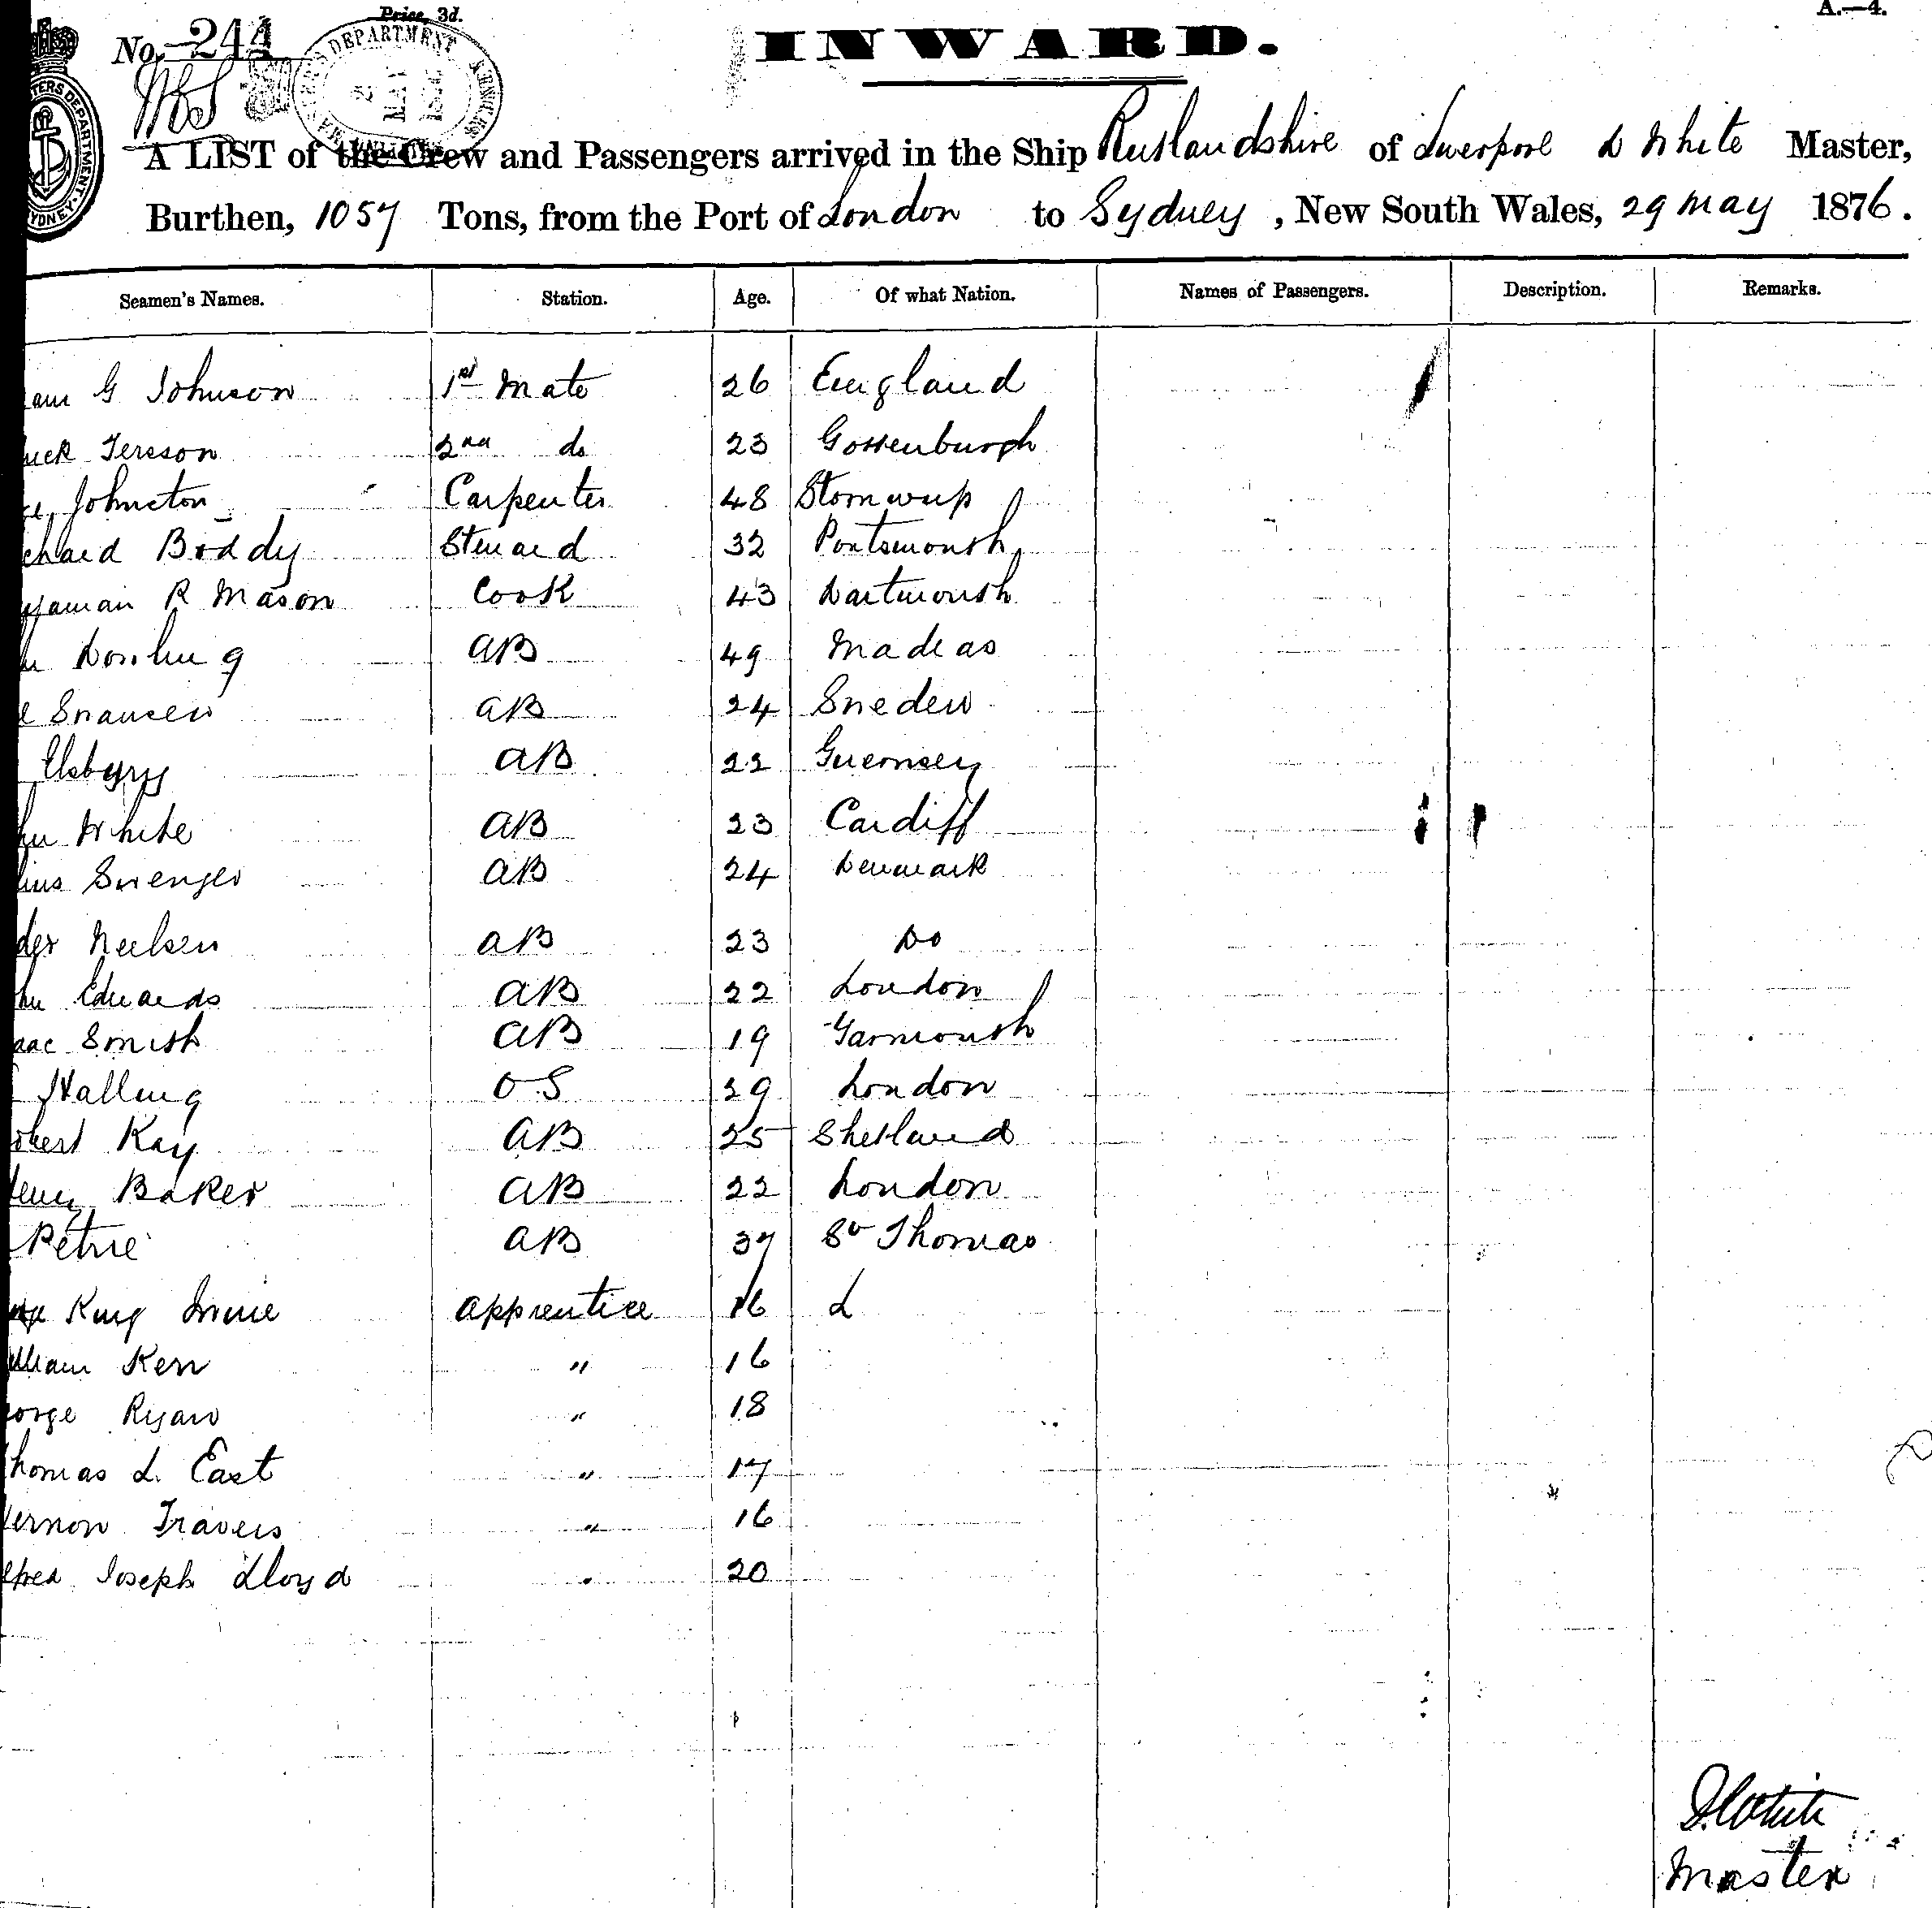 Price, 3d.
A.—4.
No. 244
INWARD.
A LIST of the Crew and Passengers arrived in the Ship Rutlandshire of Liverpool D White Master,
Burthen, 1057 Tons, from the Port of London to Sydney, New South Wales, 29 May 1876.
Seamen's Names. Station. Age. Of what Nation. Names of Passengers. Description. Remarks.
G Johnson 1st Mate 26 England
2nd do 23 Gottenburgh
Johnston Carpenter 48
chard Boddy Steward 32 Portsmouth
R Mason Cook 43 Dartmouth
AB 49 Madras
AB 24 Sweden
AB 22 Guernsey
White AB 23 Cardiff
AB 24 Denmark
Neelsen AB 23 Do
Edwards AB 22 London
aac Smith AB 19 Yarmouth
Halling O S 29 London
obert Kay AB 25 Shetland
Baker AB 22 London
Petrie AB 37 St Thomas
King Apprentice 16 L
illiam Kerr " 16
eorge Ryan " 18
homas L. East " 17
Vernon Travers " 16
Joseph Lloyd " 20
D. White
Master